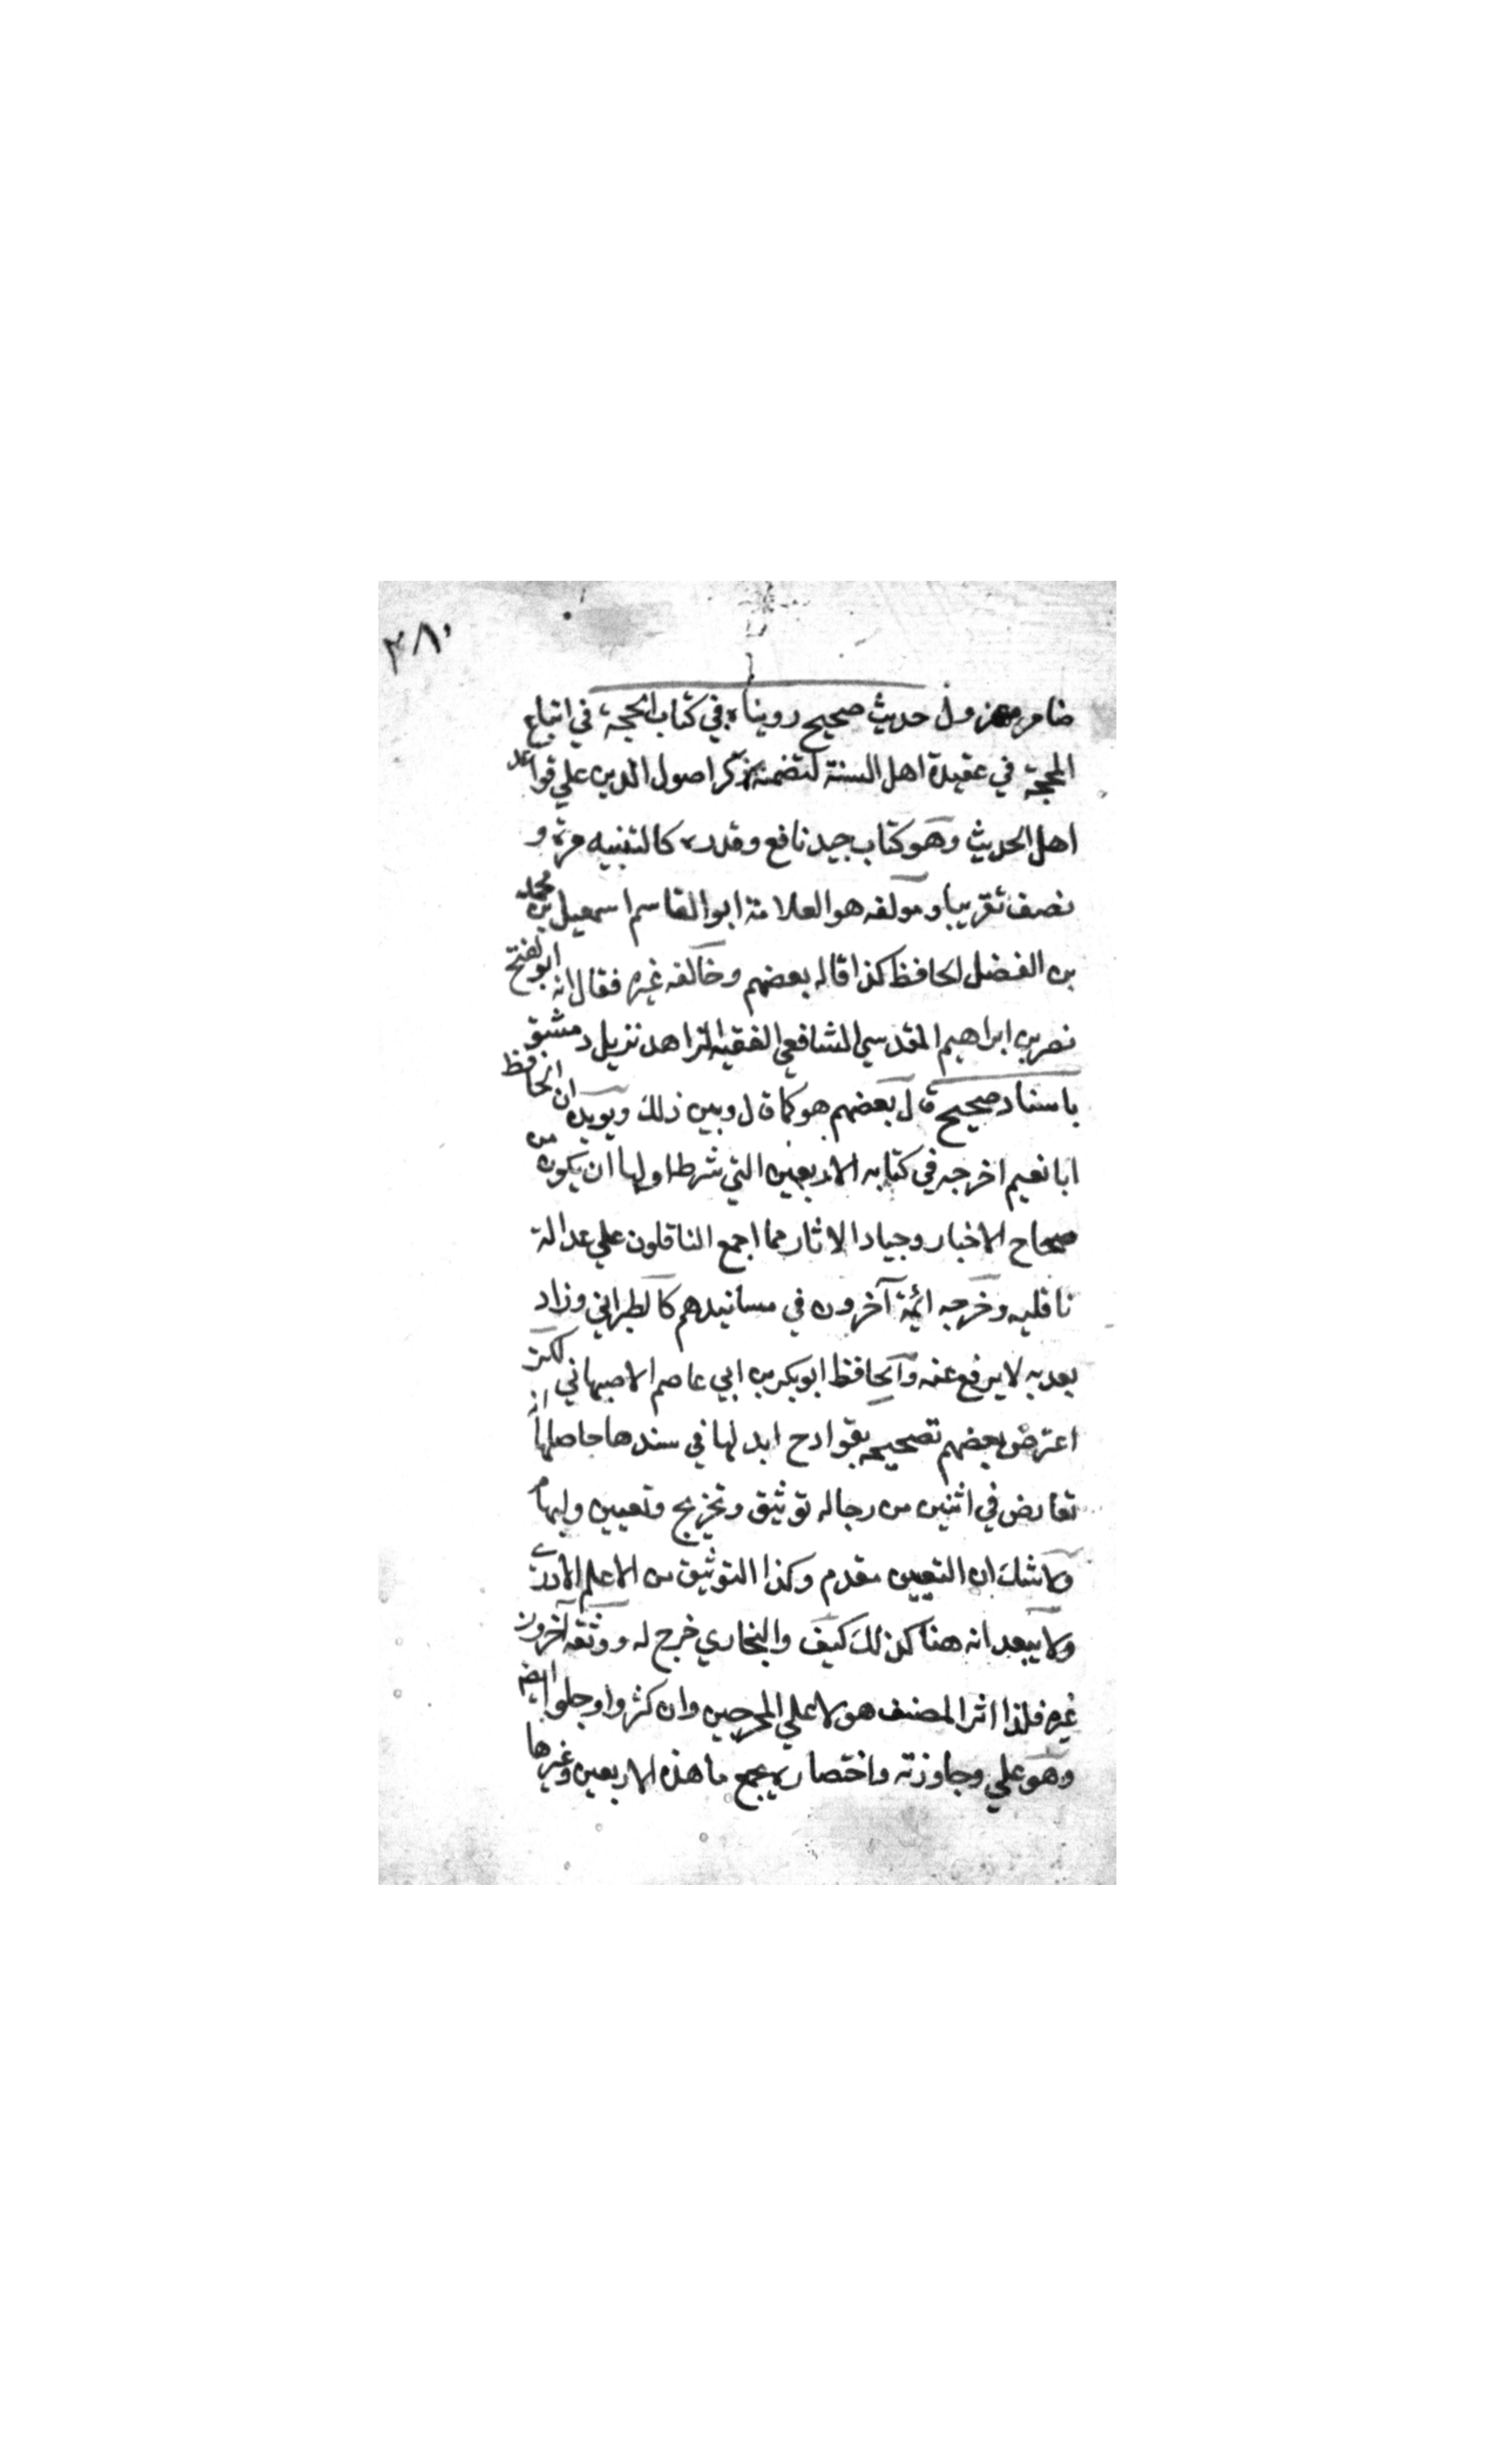 ٢٨١
ضامر معزول حديث صحيح رويناه في كتاب الحجة في اتباع
المحجة في عقيدة اهل السنة لتضمنه ذكر اصول الدين علي قواعد
اهل الحديث وهو كتاب جيد نافع وقدره كالتنبيه مرة و
نصف تقريبا ومولفه هو العلامة ابو القاسم اسمعيل بن محمد
بن الفضل الحافظ كذا قاله بعضهم وخالفه غيره فقال انه ابو الفتح
نصر بن ابراهيم المقدسي الشافعي الفقيه الزاهد نزيل دمشق
باسناد صحيح قال بعضهم هو كما قال وبين ذلك ويويده ان الحافظ
ابا نعيم اخرجه في كتابه الاربعين التي شرط اولها ان يكون من
صحاح الاخبار وجياد الاثار مما اجمع الناقلون علي عدالة
ناقليه وخرجه ائمة آخرون في مسانيدهم كالطبراني وزاد
بعد به لا يرفع عنه والحافظ ابو بكر بن ابي عاصم الاصبهاني لكن
اعترض بعضهم تصحيحه بقوادح ابدلها في سندها حاصلها انه
تعارض في اثنين من رجاله توثيق وتجريح وتعيين وابهام
ولا شك ان التعيين مقدم وكذا التوثيق من الاعلم الادري
ولا يبعد انه هنا كذلك كيف والبخاري خرج له ووثقه آخرون
غيره فلذا اثر المصنف هولا علي المجرحين وان كثروا وجلوا ايضا
وهو علي وجاوزته واختصاره يجمع ما هذه الاربعين وغيرها